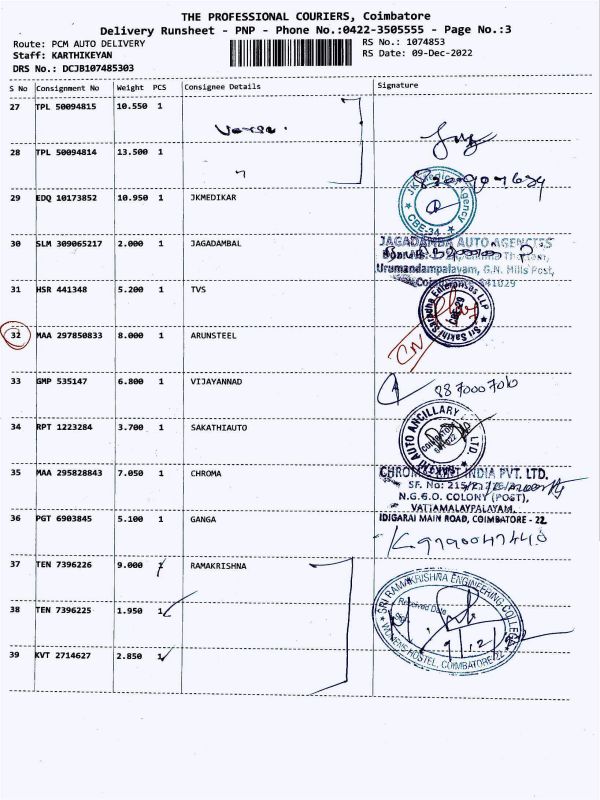 THE PROFESSIONAL COURIERS, Coimbatore
Delivery Runsheet - PNP - Phone No.:0422-3505555 - Page No.:3
Route: PCM AUTO DELIVERY
RS No.: 1074853
Staff: KARTHIKEYAN
RS Date: 09-Dec-2022
DRS No.: DCJB107485303
S No Consignment No Weight PCS Consignee Details Signature
27 TPL 50094815 10.550 1
28 TPL 50094814 13.500 1
29 EDQ 10173852 10.950 1 JKMEDIKAR
CBE-34
30 SLM 309065217 2.000 1 JAGADAMBAL
JAGADAMBA AUTO AGENCIES
Urumandampalayam, G.N. Mills Post,
31 HSR 441348 5.200 1 TVS
Sri Sakthi Saradha Enterprises LLP
CBE-29
32 MAA 297850833 8.000 1 ARUNSTEEL
CN
33 GMP 535147 6.800 1 VIJAYANNAD
34 RPT 1223284 3.700 1 SAKATHIAUTO
35 MAA 295828843 7.050 1 CHROMA
INDIA PVT. LTD.
N.G.G.O. COLONY (POST),
VATTAMALAYPALAYAM,
IDIGARAI MAIN ROAD, COIMBATORE - 22.
36 PGT 6903845 5.100 1 GANGA
37 TEN 7396226 9.000 1 RAMAKRISHNA
38 TEN 7396225 1.950 1
SRI RAMAKRISHNA ENGINEERING COLLEGE
Received Date
WOMENS HOSTEL, COIMBATORE-22
39 KVT 2714627 2.850 1